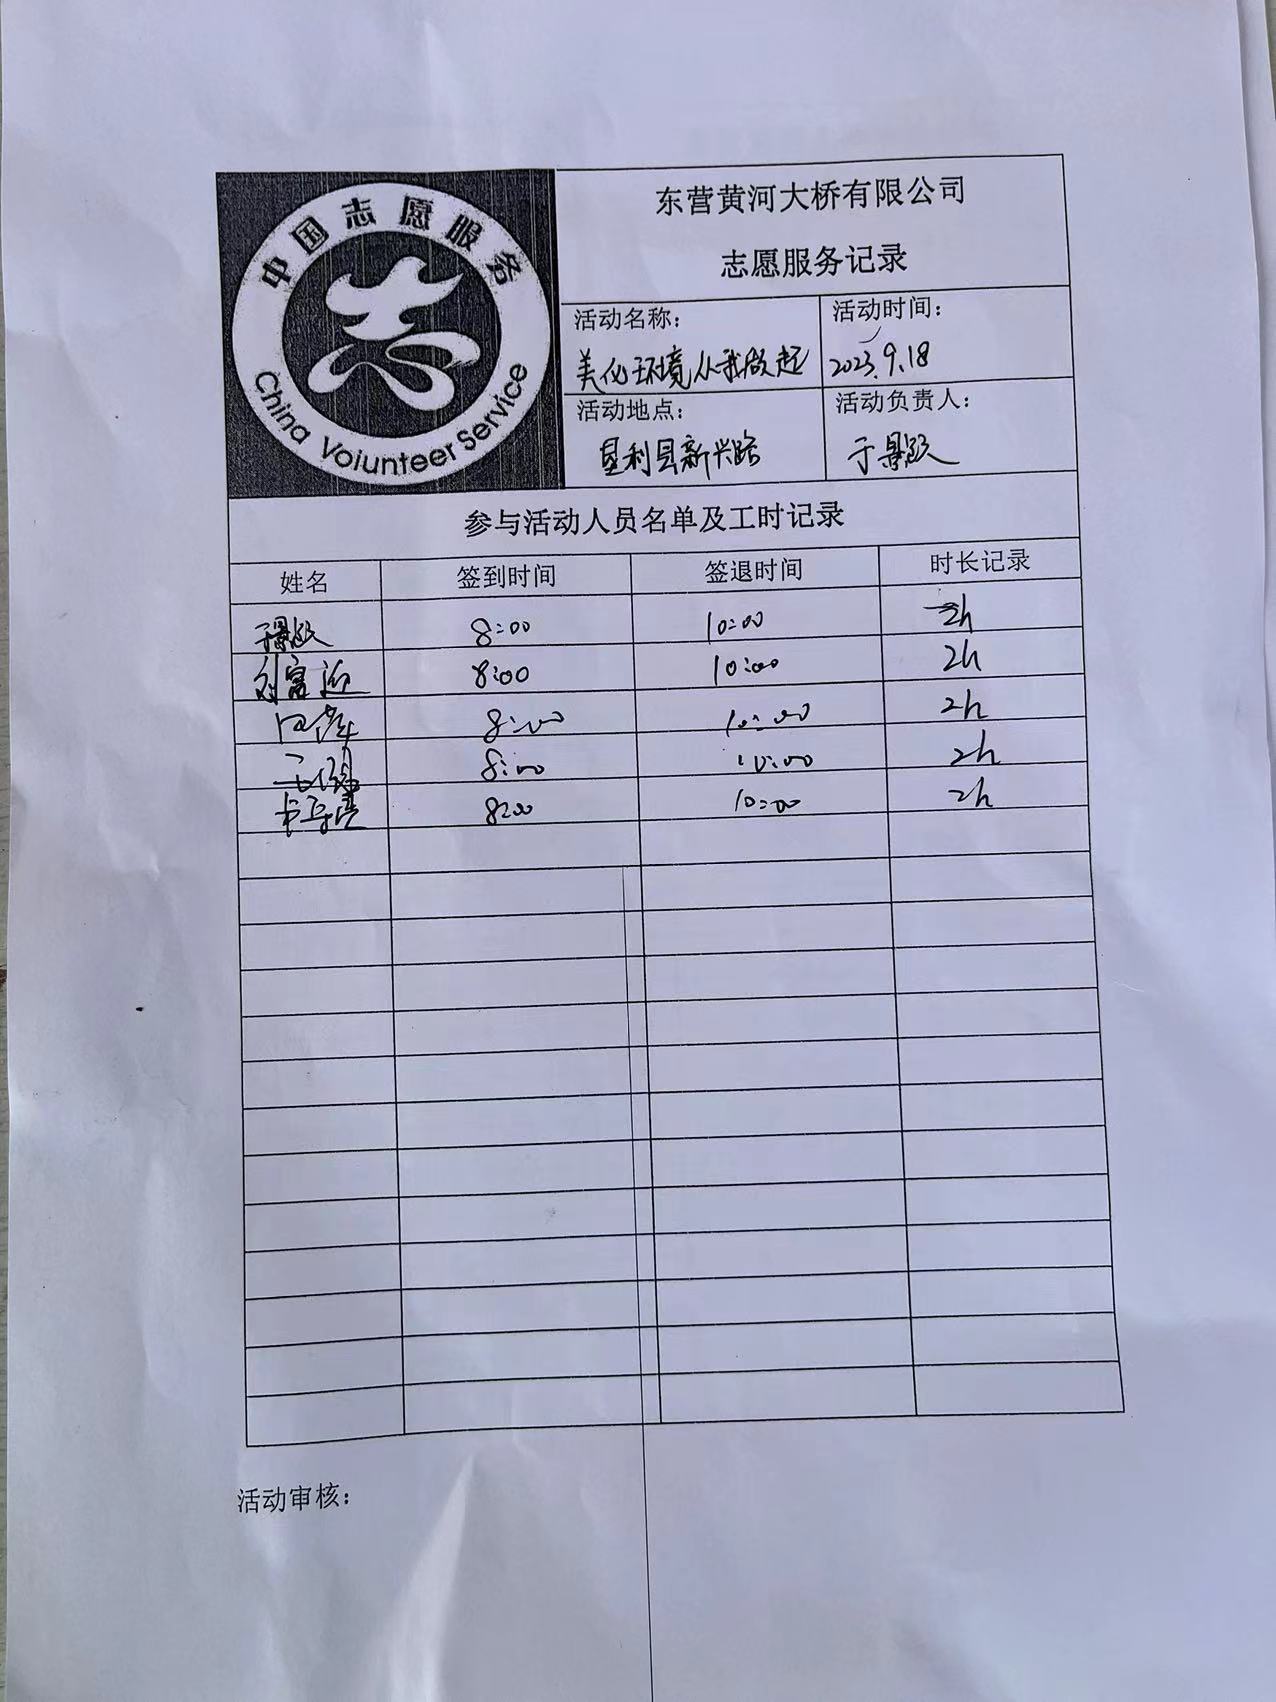 中国志愿服务
China Voiunteer Service
东营黄河大桥有限公司
志愿服务记录
活动名称：
美化环境从我做起
活动时间：
2023.9.18
活动地点：
垦利县新兴路
活动负责人：
参与活动人员名单及工时记录
姓名 签到时间 签退时间 时长记录
8:00 10:00 2h
刘富迎 8:00 10:00 2h
8:00 10:00 2h
8:00 10:00 2h
8:00 10:00 2h
活动审核：